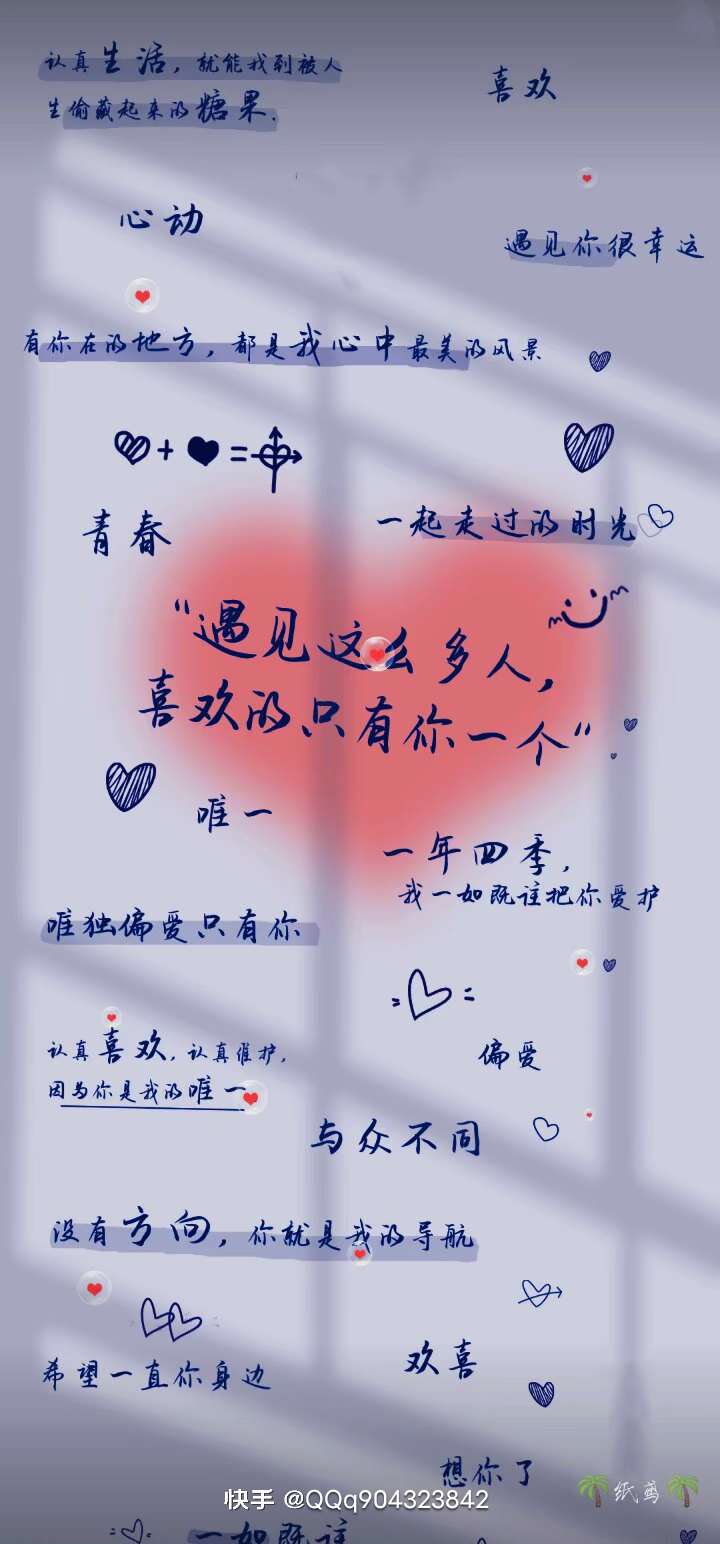 认真生活，就能找到被人
生偷藏起来的糖果.
喜欢
心动
遇见你很幸运
有你在的地方，都是我心中最美的风景
青春
一起走过的时光
“遇见这么多人，
喜欢的只有你一个”
唯一
一年四季，
我一如既往把你爱护
唯独偏爱只有你
认真喜欢，认真维护，
因为你是我的唯一
偏爱
与众不同
没有方向，你就是我的导航
欢喜
希望一直你身边
想你了
纸鸢
快手 @QQq904323842
一如既往